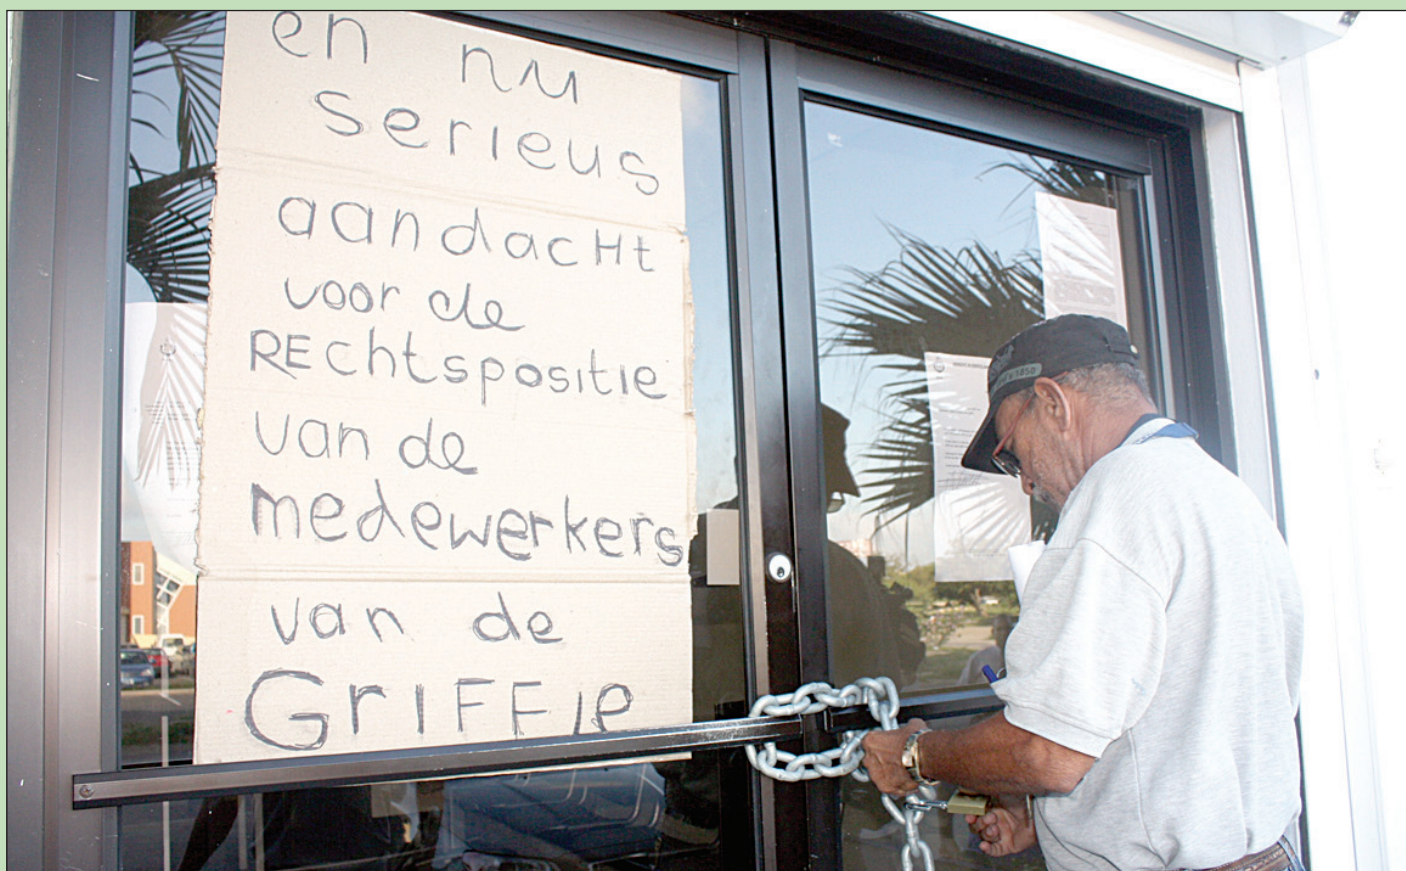 en nu
serieus
aandacHt
voor de
REchtspositie
van de
medewerkers
van de
GrIFFIe